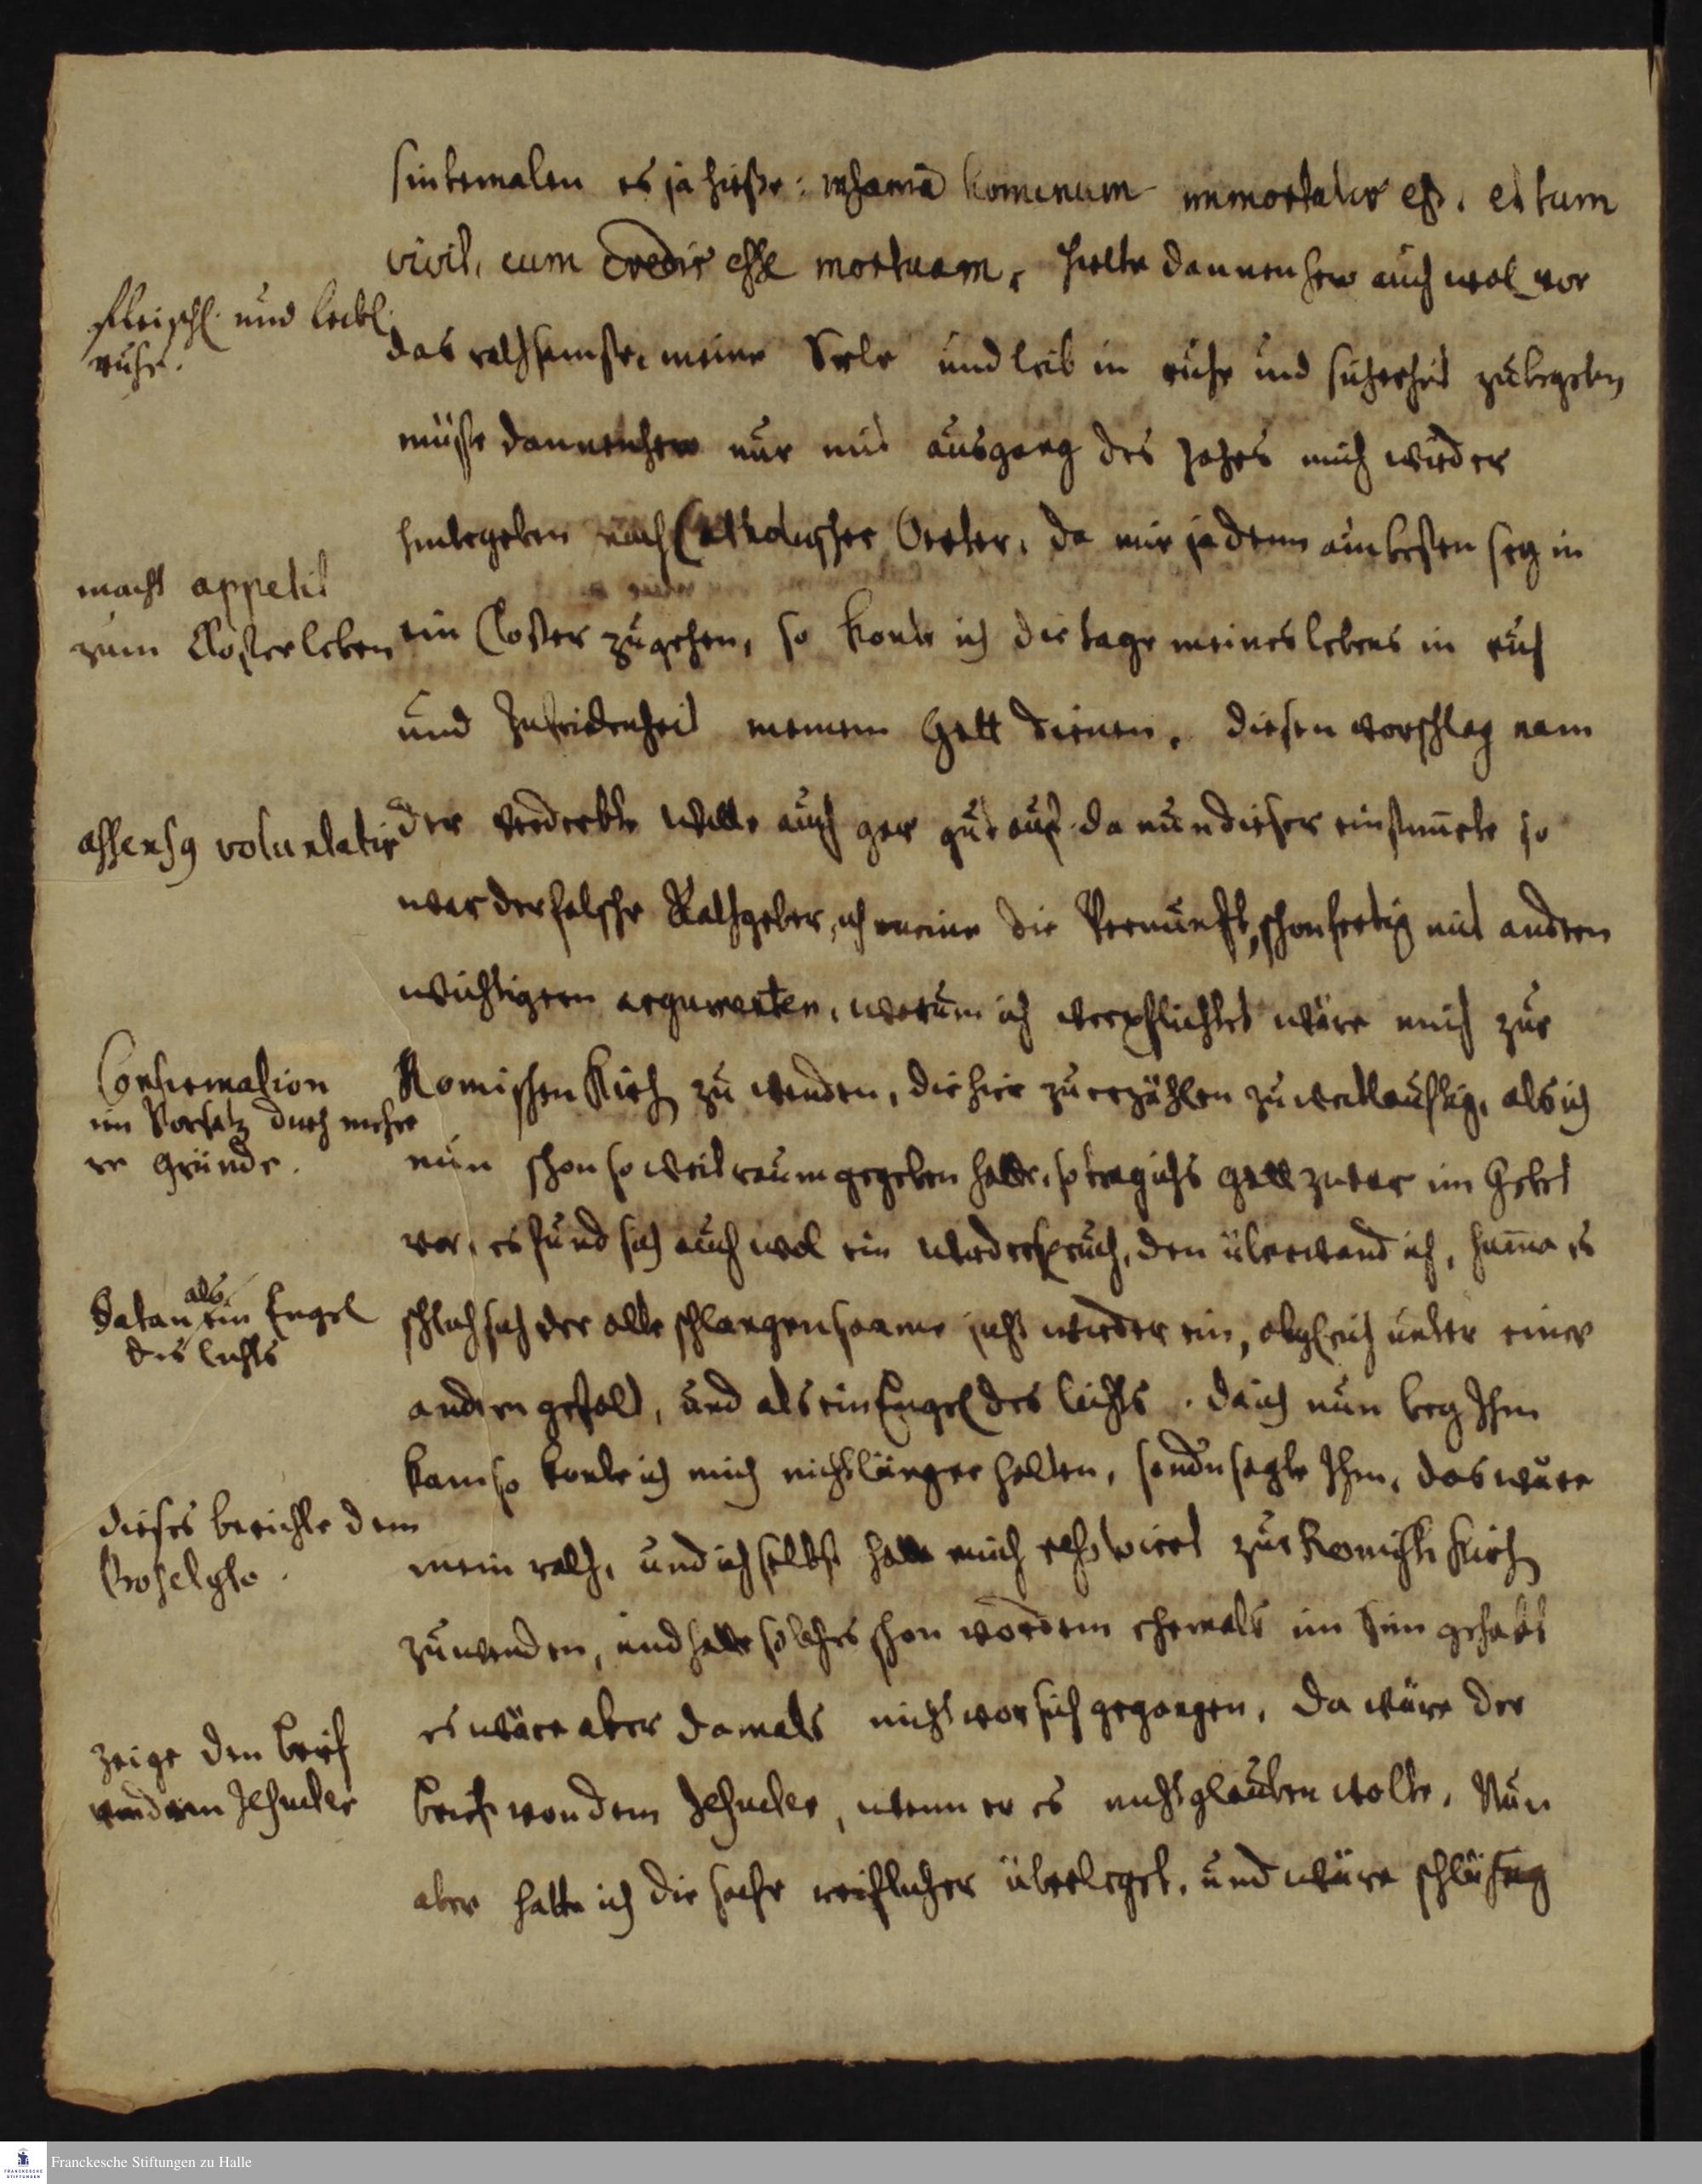 sintemalen es ja hieße: infamia hominum immortalis est. et tum
vivit, cum credis esse mortuam, hielte dannenhero auch wol vor
fleischl. und leibl.
ruhe.
das rathsamste, meine Sele und leib in ruhe und sicherheit zubegeben
müste dannenhero nur mit ausgang des Jahrs mich wieder
hinbegeben nach Catholischer Oerter, da mir ja denn am besten sey in
macht appetit
zum Closterleben
ein Closter zugehen, so konte ich die tage meines lebens in ruh
und Zufridenheit meinem Gott dienen. diesen vorschlag nam
assensq voluntatis
der verderbte Wille auch gar gut auf. da nun dieser einstimete so
war der falsche Rathgeber, ich meine die Vernunft, schon fertig mit andern
wichtigern argumenten, warum ich verpflichtet wäre mich zur
Confirmation
im Vorsatz durch mehre
re gründe.
Romischen Kirch zu wenden, die hier zu erzählen zu weitläuftig, als ich
nun schon so weit raum gegeben hatte, so trug ichs Gott zwar im Gebet
vor, es fund sich auch wol ein Wiederspruch, den überwand ich, es
Satan als ein Engel
des lichts
schlich sich der alte schlangensaame wieder ein, obgleich unter einer
andern gestalt, und als ein Engel des lichts. da ich nun bey Ihm
kam so konte ich mich nicht länger halten, sondn sagte Ihm, das wäre
dieses berichte dem
mein rath, und ich selbst hatte mich zur Romischen Kirch
zuwenden, und hatte solches schon vordem ehemals im Sinn gehabt
zeige den brief
von dem Jesuiter
es wäre aber damals nicht vor sich gegangen, da wäre der
brief von dem Jesuiter, wenn er es nicht glauben wolte. Nun
aber hatte ich die sache reiflicher überleget, und wäre schlüßig
Franckesche Stiftungen zu Halle